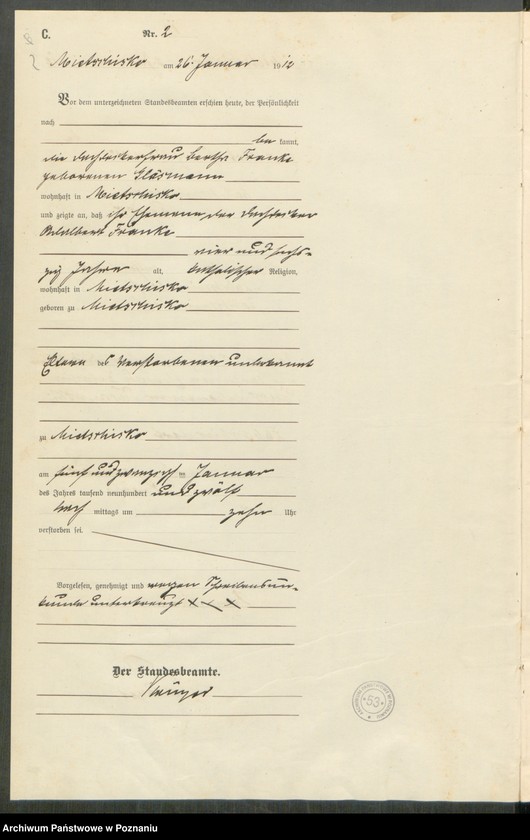 C.
Nr. 2
Mietschisko am 26. Januar 1912
Vor dem unterzeichneten Standesbeamten erschien heute, der Persönlichkeit
nach
be kannt,
die Dachdeckerfrau Bertha Franke
geborenen Gläsmann
wohnhaft in Mietschisko
und zeigte an, daß ihr Ehemann der Dachdecker
Adalbert Franke
vier und sech-
zig Jahre alt, katholischer Religion,
wohnhaft in Mietschisko
geboren zu Mietschisko
Eltern des Verstorbenen unbekannt
zu Mietschisko
am fünfundzwanzigsten Januar
des Jahres tausend neunhundert und zwölf
Nach mittags um zehn Uhr
verstorben sei.
Vorgelesen, genehmigt und wegen Schreibensun-
kunde unterkreuzt × × ×
Der Standesbeamte.
Krüger
53
Archiwum Państwowe w Poznaniu